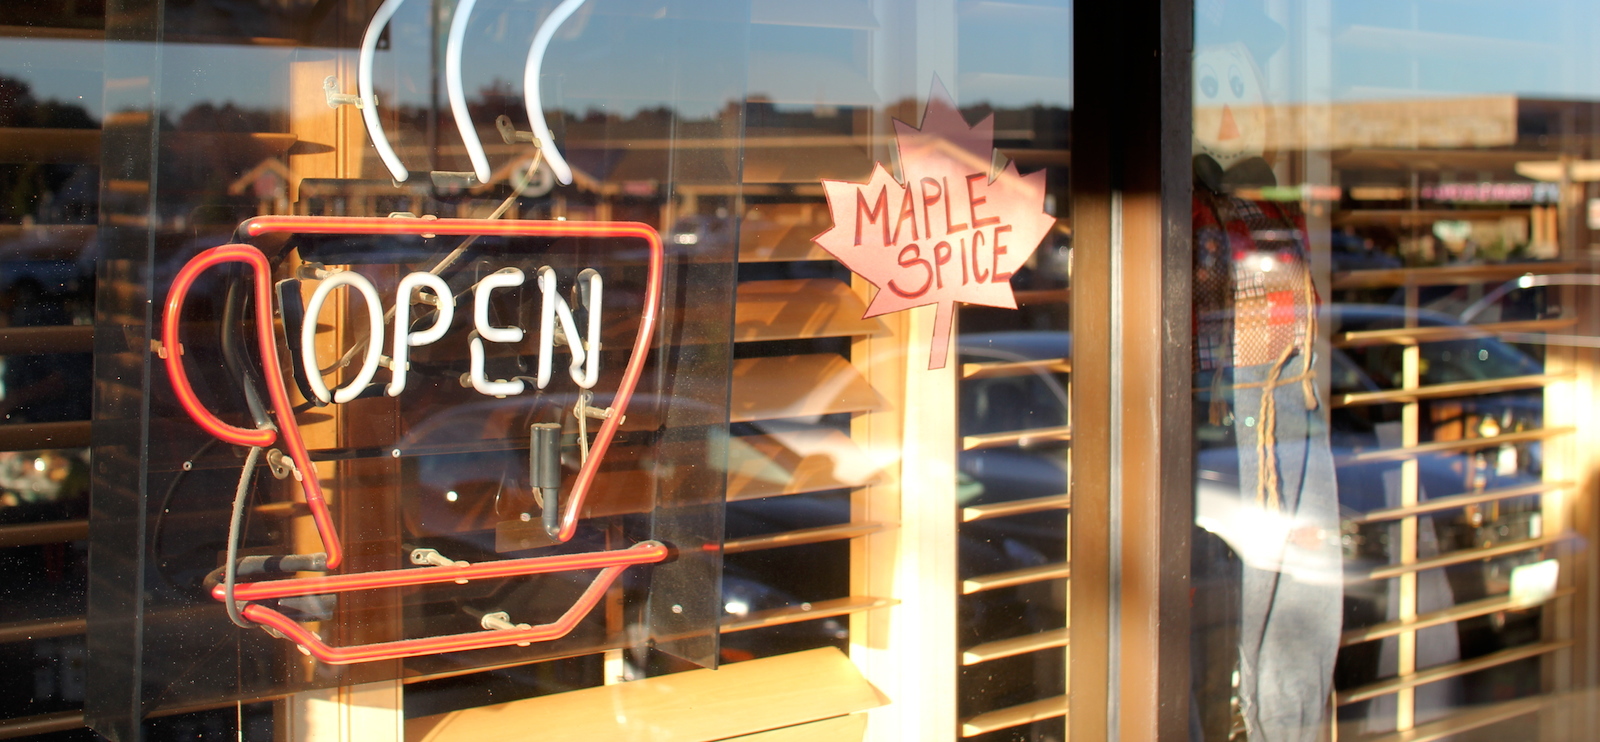 OPEN
MAPLE
SPICE